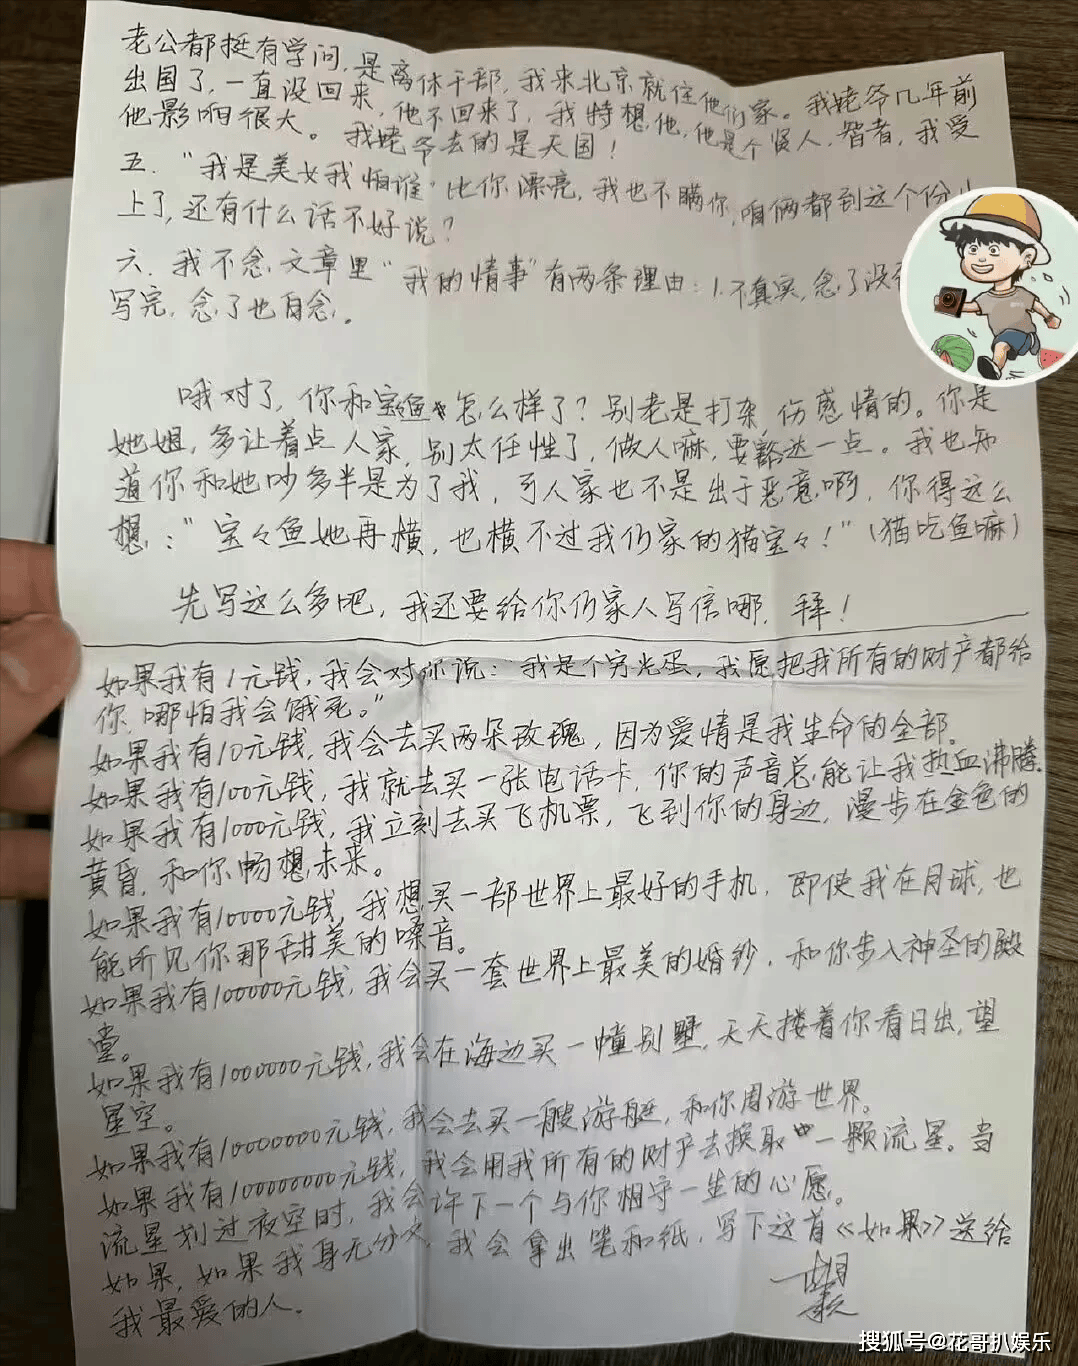 老公都挺有学问，是离休干部，我来北京就住他们家。我姥爷几年前
出国了，一直没回来，他不回来了，我特想他，他是个贤人，智者，我受
他影响很大。我姥爷去的是天国！
五．“我是美女我怕谁”比你漂亮，我也不瞒你，咱俩都到这个份
上了，还有什么话不好说？
六．我不念文章里“我的情事”有两条理由：1.不真实，念了没
写完，念了也白念。
哦对了，你和宝鱼怎么样了？别老是打杂，伤感情的。你是
她姐，多让着点人家，别太任性了，做人嘛，要豁达一点。我也知
道你和她吵多半是为了我，可人家也不是出于恶意啊，你得这么
想：“宝々鱼她再横，也横不过我们家的猫宝々！”（猫吃鱼嘛）
先写这么多吧，我还要给你们家人写信哪，拜！
如果我有1元钱，我会对你说：“我是个穷光蛋，我愿把我所有的财产都给
你，哪怕我会饿死。”
如果我有10元钱，我会去买两朵玫瑰，因为爱情是我生命的全部。
如果我有100元钱，我就去买一张电话卡，你的声音总能让我热血沸腾。
如果我有1000元钱，我立刻去买飞机票，飞到你的身边，漫步在金色的
黄昏，和你畅想未来。
如果我有10000元钱，我想买一部世界上最好的手机，即使我在月球，也
能听见你那甜美的嗓音。
如果我有100000元钱，我会买一套世界上最美的婚纱，和你步入神圣的殿
堂。
如果我有1000000元钱，我会在海边买一幢别墅，天天搂着你看日出，望
星空。
如果我有10000000元钱，我会去买一艘游艇，和你周游世界。
如果我有100000000元钱，我会用我所有的财产去换取一颗流星。当
流星划过夜空时，我会许下一个与你相守一生的心愿。
如果，如果我身无分文，我会拿出笔和纸，写下这首《如果》送给
我最爱的人。
搜狐号@花哥扒娱乐